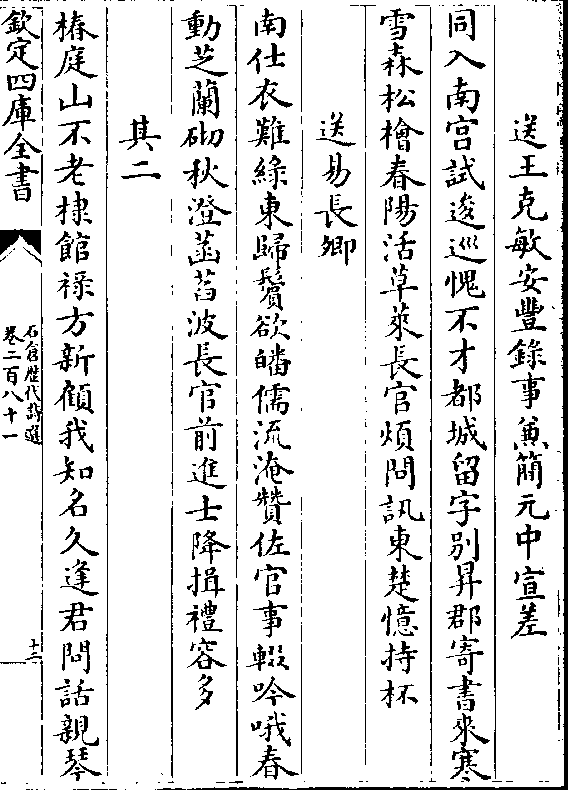 送王克敏安豐錄事兼簡元中宣差
同入南宫試逡巡愧不才都城留字别昇郡寄書來寒
雪森松檜春陽活草萊長官煩問訊東楚憶持杯
送易長卿
南仕衣難綠東歸鬢欲皤儒流淹贊佐官事輟吟哦春
動芝蘭砌秋澄菡萏波長官前進士降揖禮容多
其二
椿庭山不老棣館禄方新顧我知名久逢君問話親琴
欽定四庫全書
石倉歴代詩選
卷二百八十一
十二